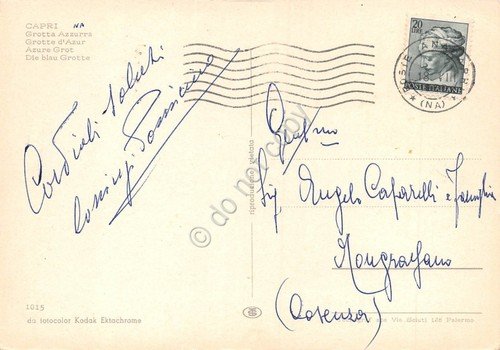 CAPRI NA
Grotta Azzurra
Grotte d'Azur
Azure Grot
Die blau Grotte
Cordiali saluti
20
LIRE
POSTE ITALIANE
(NA)
do not copy
Sig. Angelo Caparelli e Famiglia
Mongrassano
(Cosenza)
1015
da fotocolor Kodak Ektachrome
riproduzione vietata
Palermo